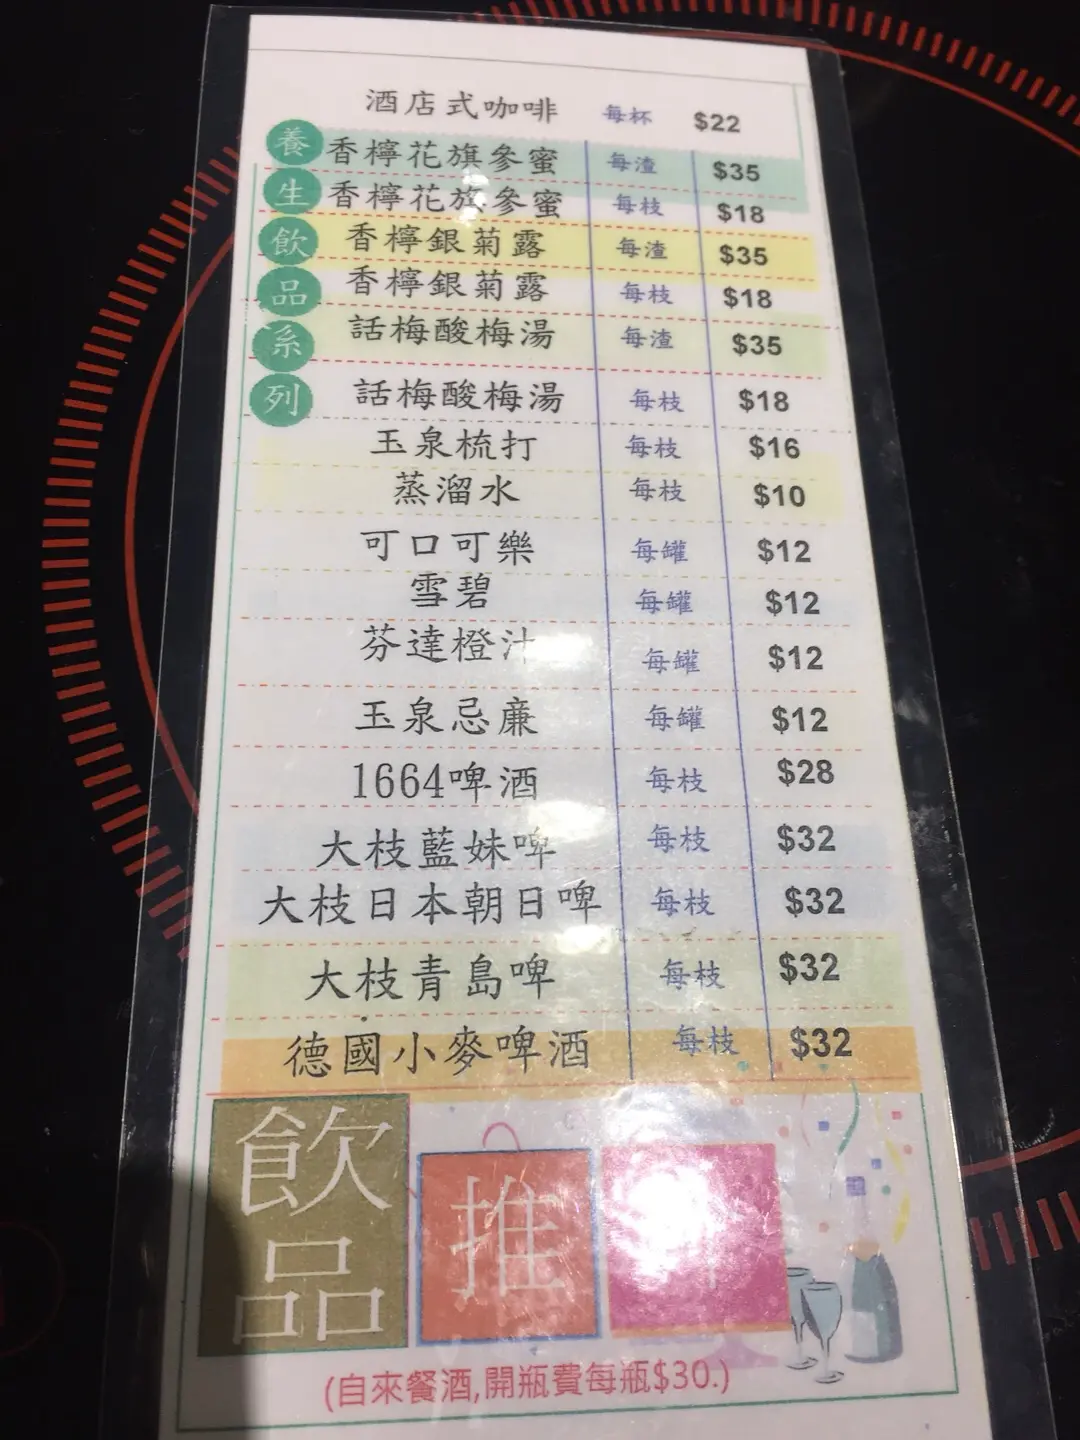 酒店式咖啡 每杯 $22
養生飲品系列
香檸花旗參蜜 每渣 $35
香檸花旗參蜜 每枝 $18
香檸銀菊露 每渣 $35
香檸銀菊露 每枝 $18
話梅酸梅湯 每渣 $35
話梅酸梅湯 每枝 $18
玉泉梳打 每枝 $16
蒸溜水 每枝 $10
可口可樂 每罐 $12
雪碧 每罐 $12
芬達橙汁 每罐 $12
玉泉忌廉 每罐 $12
1664啤酒 每枝 $28
大枝藍妹啤 每枝 $32
大枝日本朝日啤 每枝 $32
大枝青島啤 每枝 $32
德國小麥啤酒 每枝 $32
飲品
推
(自來餐酒,開瓶費每瓶$30.)